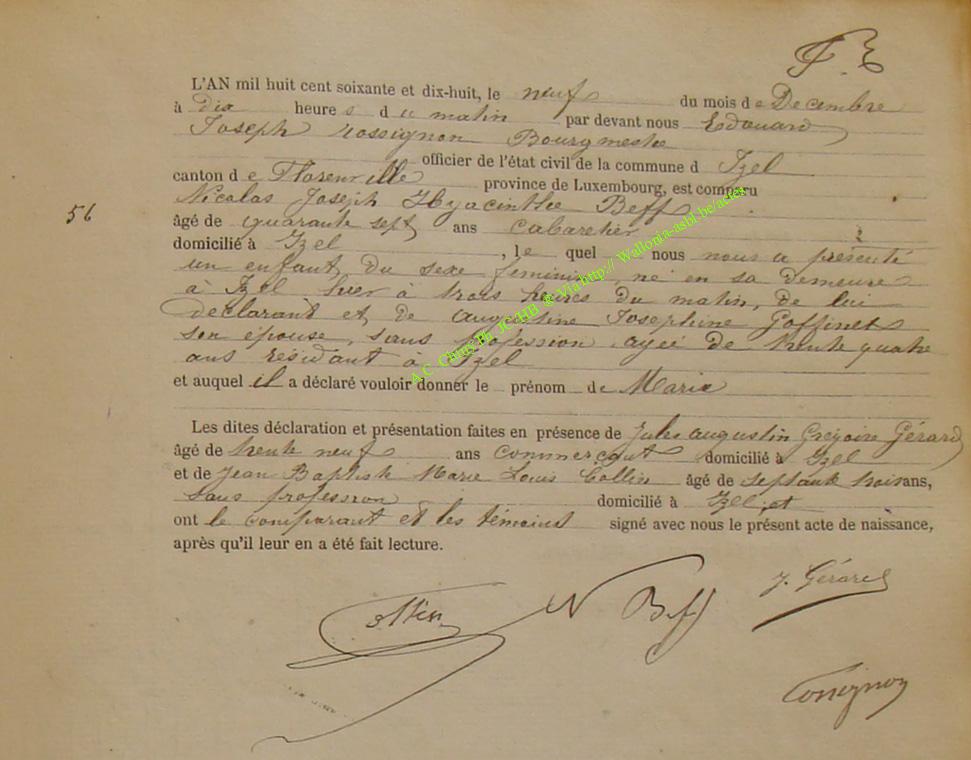 F. E
L'AN mil huit cent soixante et dix-huit, le neuf du mois de Decembre
à dix heures du matin par devant nous Edouard
Joseph Rossignon Bourgmestre
officier de l'état civil de la commune d Izel
canton de Florenville province de Luxembourg, est comparu
56
Nicolas Joseph Hyacinthe Beff
âgé de quarante sept ans cabaretier
domicilié à Izel, le quel nous nous a présenté
un enfant du sexe feminin, né en sa demeure
à Izel hier à trois heures du matin, de lui
déclarant et de Augustine Josephine Goffinet
son épouse, sans profession, agée de trente quatre
ans résidant à Izel
et auquel il a déclaré vouloir donner le prénom de Maria
Les dites déclaration et présentation faites en présence de Jules Augustin Grégoire Gérard
âgé de trente neuf ans commerçant domicilié à Izel
et de Jean Baptiste Marie Louis Collin âgé de septante trois ans,
sans profession domicilié à Izel, et
ont le comparant et les témoins signé avec nous le présent acte de naissance,
après qu'il leur en a été fait lecture.
J. Gérard
Collin N Beff
Rossignon
A.C. Chiny Ph. JC-HB & Via http:// Wallonia-asbl.be/actes